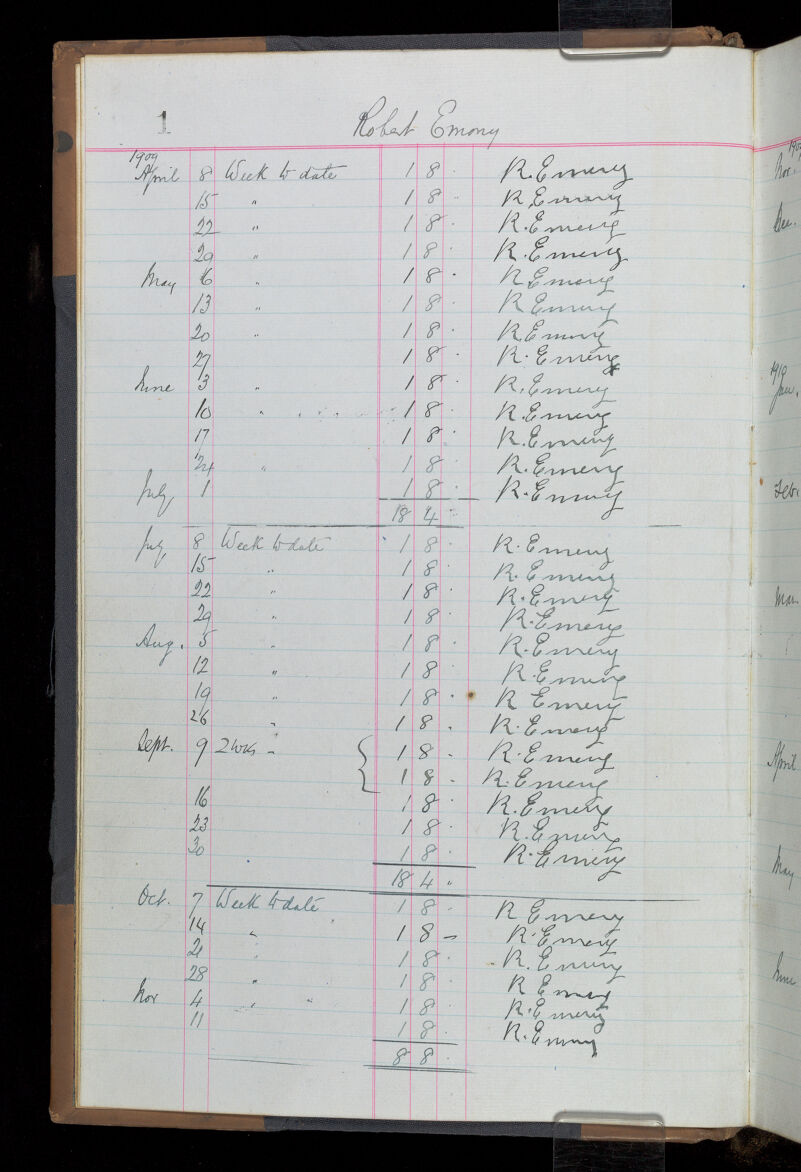 1
Robert Emery
1909
April 8 Week to date 1 8 . R. Emery
15 " 1 8 .. R Emery
22 " 1 8 . R. Emery
29 " 1 8 . R. Emery
May 6 " 1 8 . R Emery
13 " 1 8 . R Emery
20 " 1 8 . R Emery
27 1 8 . R. Emery
June 3 " 1 8 . R. Emery
10 " 1 8 . R. Emery
17 1 8 . R. Emery
24 " 1 8 . R. Emery
July 1 1 8 . R. Emery
18 4 "
July 8 Week to date 1 8 . R. Emery
15 " 1 8 . R. Emery
22 " 1 8 . R. Emery
29 " 1 8 . R. Emery
Aug. 5 " 1 8 . R. Emery
12 " 1 8 R. Emery
19 " 1 8 . R Emery
26 " 1 8 . R. Emery
Sept. 9 2 wks " { 1 8 - R. Emery
1 8 - R. Emery
16 1 8 . R. Emery
23 1 8 . R. Emery
30 1 8 . R. Emery
18 4 "
Oct. 7 Week to date 1 8 . R Emery
14 " 1 8 - R. Emery
21 " 1 8 . R. Emery
28 " 1 8 . R Emery
Nov 4 " " 1 8 . R. Emery
11 1 8 . R. Emery
8 8 .
Nov.
Dec.
1910
Jan.
Feb.
Mar.
April
May
June